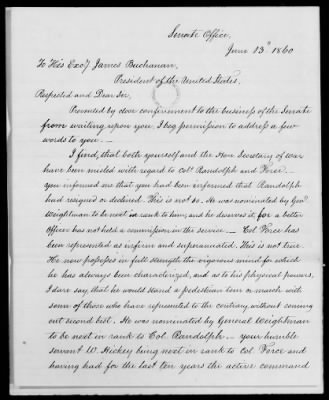 Senate Office,
June 13th 1860
To His Excy James Buchanan,
President of the United States.
Respected and Dear Sir,
Prevented by close confinement to the business of the Senate
from waiting upon you, I beg permission to address a few
words to you. —
I find, that both yourself and the Hon Secretary of War
have been misled with regard to Col. Randolph and Force. —
you informed me that you had been informed that Randolph
had resigned or declined. This is not so. He was nominated by Genl
Weightman to be next in rank to him, and he deserves it, for a better
Officer has not held a commission in the service — Col Force has
been represented as infirm and superannuated. This is not true.
He now possesses in full strength the vigorous mind for which
he has always been characterized, and as to his physical powers,
I dare say, that he would stand a pedestrian tour or march with
some of those who have represented to the contrary without coming
out second best. He was nominated by General Weightman
to be next in rank to Col. Randolph — your humble
servant W. Hickey being next in rank to Col Force and
having had for the last ten years the active command